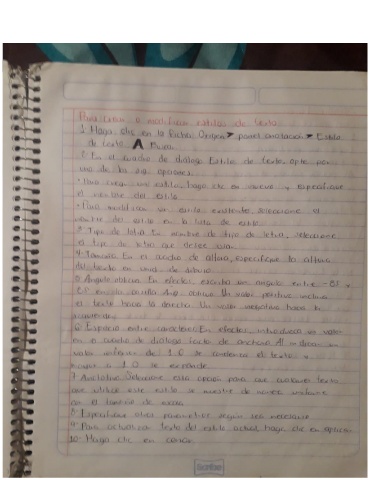 Para crear o modificar estilos de texto
1. Haga clic en la ficha Origen > panel anotación > Estilo
de texto A Busca.
2. En el cuadro de diálogo Estilo de texto, opte por
uno de las sig. opciones.
• Para crear un estilo, haga clic en nuevo y especifique
el nombre del estilo.
• Para modificar un estilo existente, seleccione el
nombre del estilo en la lista de estilo
3. Tipo de letra En nombre de tipo de letra, seleccione
el tipo de letra que desee usar.
4. Tamaño En el cuadro de altura, especifique la altura
del texto en unid. de dibujo
5. Angulo oblicuo En efectos, escriba un angulo entre -85 y
85 en el cuadro Ang. oblicuo Un valor positivo inclina
el texto hacia la derecha. Un valor negativo hacia la
izquierda
6. Espacio entre caracteres En efectos, introduzca un valor
en el cuadro de dialogo factor de anchura. Al introducir un
valor inferior de 1.0 se condensa el texto y
mayor a 1.0 se expande.
7. Anotativo Seleccione esta opción para que cualquier texto
que utilice este estilo se muestre de manera uniforme
en el tamaño de
8. Especifique otros parametros según sea necesario
9. Para actualizar texto del estilo actual, haga clic en aplicar
10. Haga clic en cerrar.
Scribe